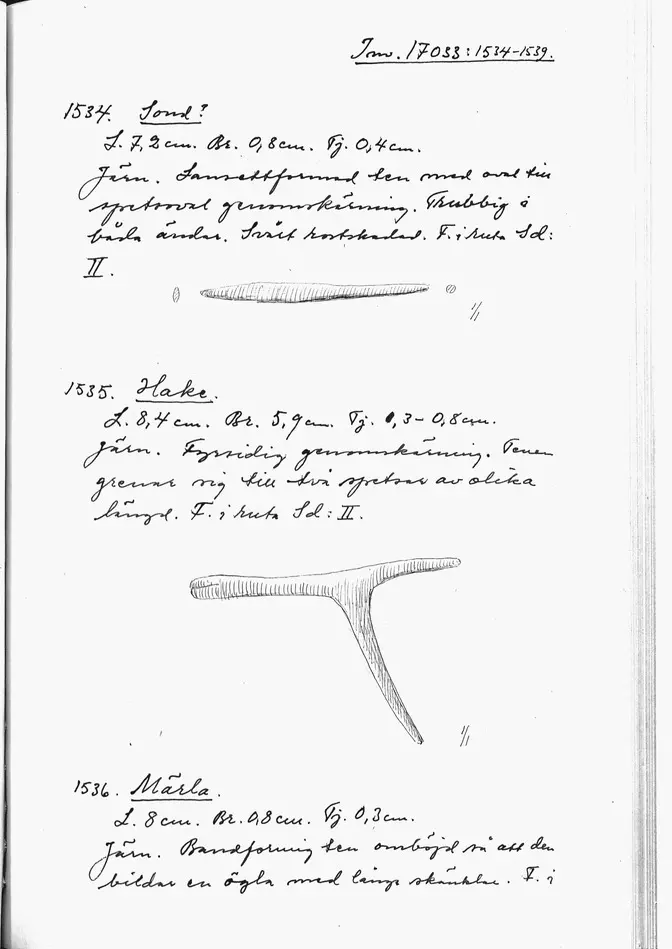 Inv. 17033:1534-1539.
1534. Sond?
L. 7,2 cm. Br. 0,8 cm. Tj. 0,4 cm.
Järn. Lansettformad ten med oval till
spetsoval genomskärning. Trubbig i
båda ändar. Svårt rostskadad. F. i ruta Sd:
II.
1/1
1535. Hake.
L. 8,4 cm. Br. 5,9 cm. Tj. 0,3-0,8 cm.
Järn. Fyrsidig genomskärning. Tenen
grenar sig till två spetsar av olika
längd. F. i ruta Sd: II.
1/1
1536. Märla.
L. 8 cm. Br. 0,8 cm. Tj. 0,3 cm.
Järn. Bandformig ten omböjd så att den
bildar en ögla med långa skänklar. F. i